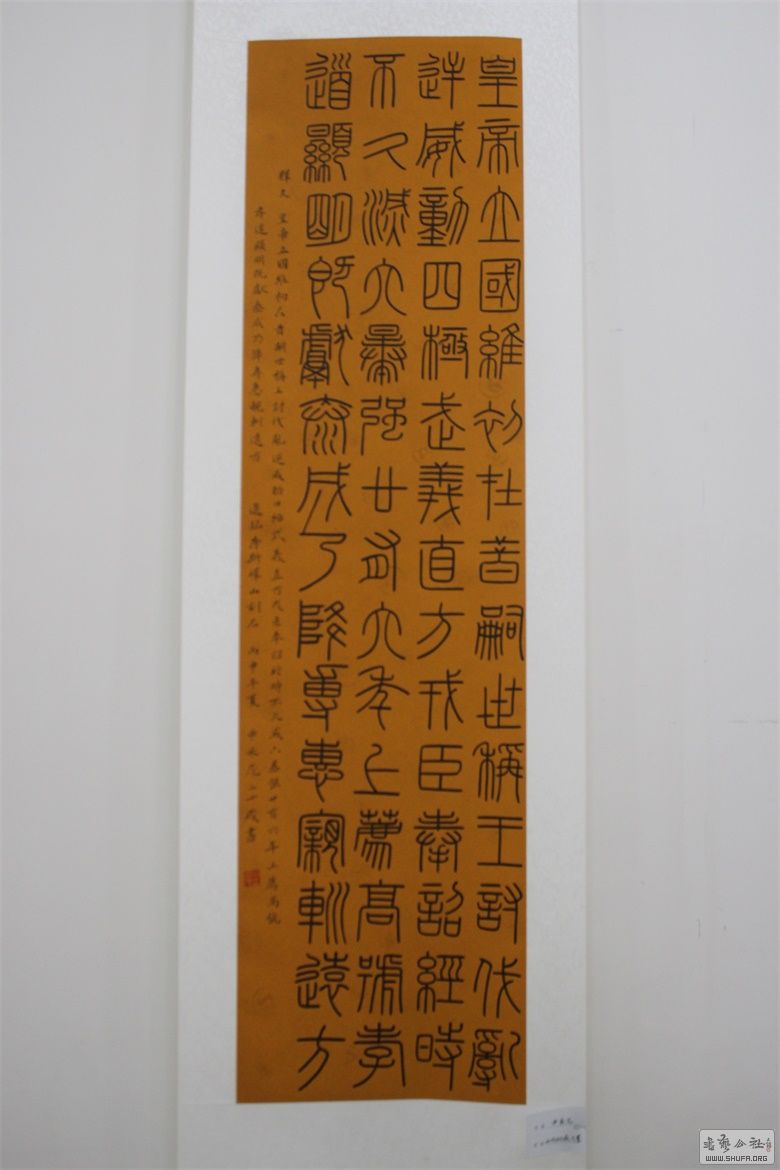 皇帝立國維初在昔嗣世稱王討伐亂
逆威動四極武義直方戎臣奉詔經時
不久滅六暴強廿有六年上薦高號孝
道顯明既獻泰成乃降專惠親巡遠方
釋文 皇帝立國維初在昔嗣世稱王討伐亂逆威動四極武義直方戎臣奉詔經時不久滅六暴強廿有六年上薦高號
孝道顯明既獻泰成乃降專惠親巡遠方 李斯嶧山刻石 丙申年夏
書藝公社
WWW.SHUFA.ORG